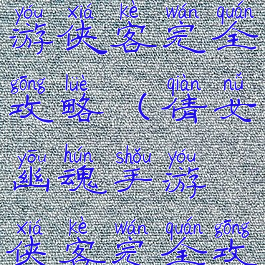 yóu xiá kè wán quán
游侠客完全
gōng lüè qiàn nǚ
攻略（倩女
yōu hún shǒu yóu
幽魂手游
xiá kè wán quán gōng
侠客完全攻